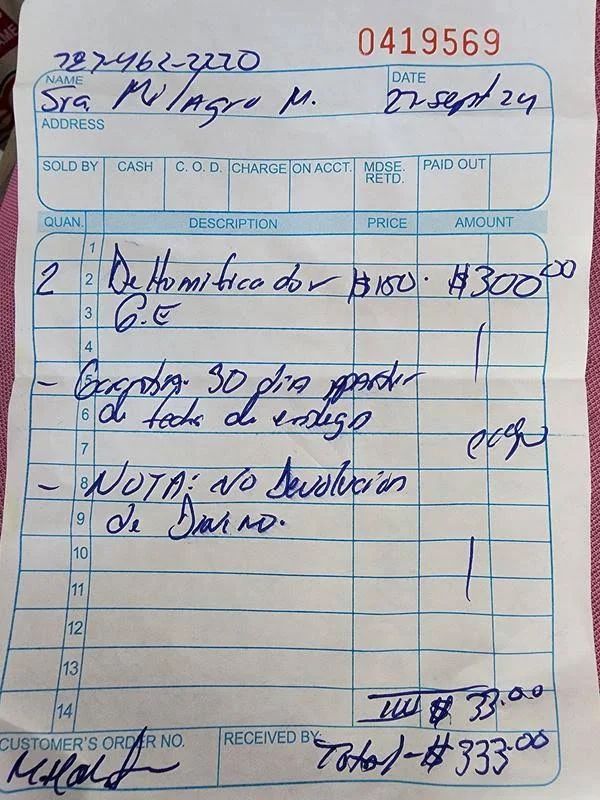 0419569
787-462-2220
NAME DATE
Sra. Milagro M. 27 Sept 24
ADDRESS
SOLD BY CASH C. O. D. CHARGE ON ACCT. MDSE. RETD. PAID OUT
QUAN. DESCRIPTION PRICE AMOUNT
1
2 2 DeHumificador $150. $300.00
3 G.E
4
5 - Garantia 30 dia apartir
6 de fecha de entrega
7
8 - NOTA: No Devolucion
9 de Dinero.
10
11
12
13
14 IVU $ 33.00
CUSTOMER'S ORDER NO. RECEIVED BY: Total - $333.00